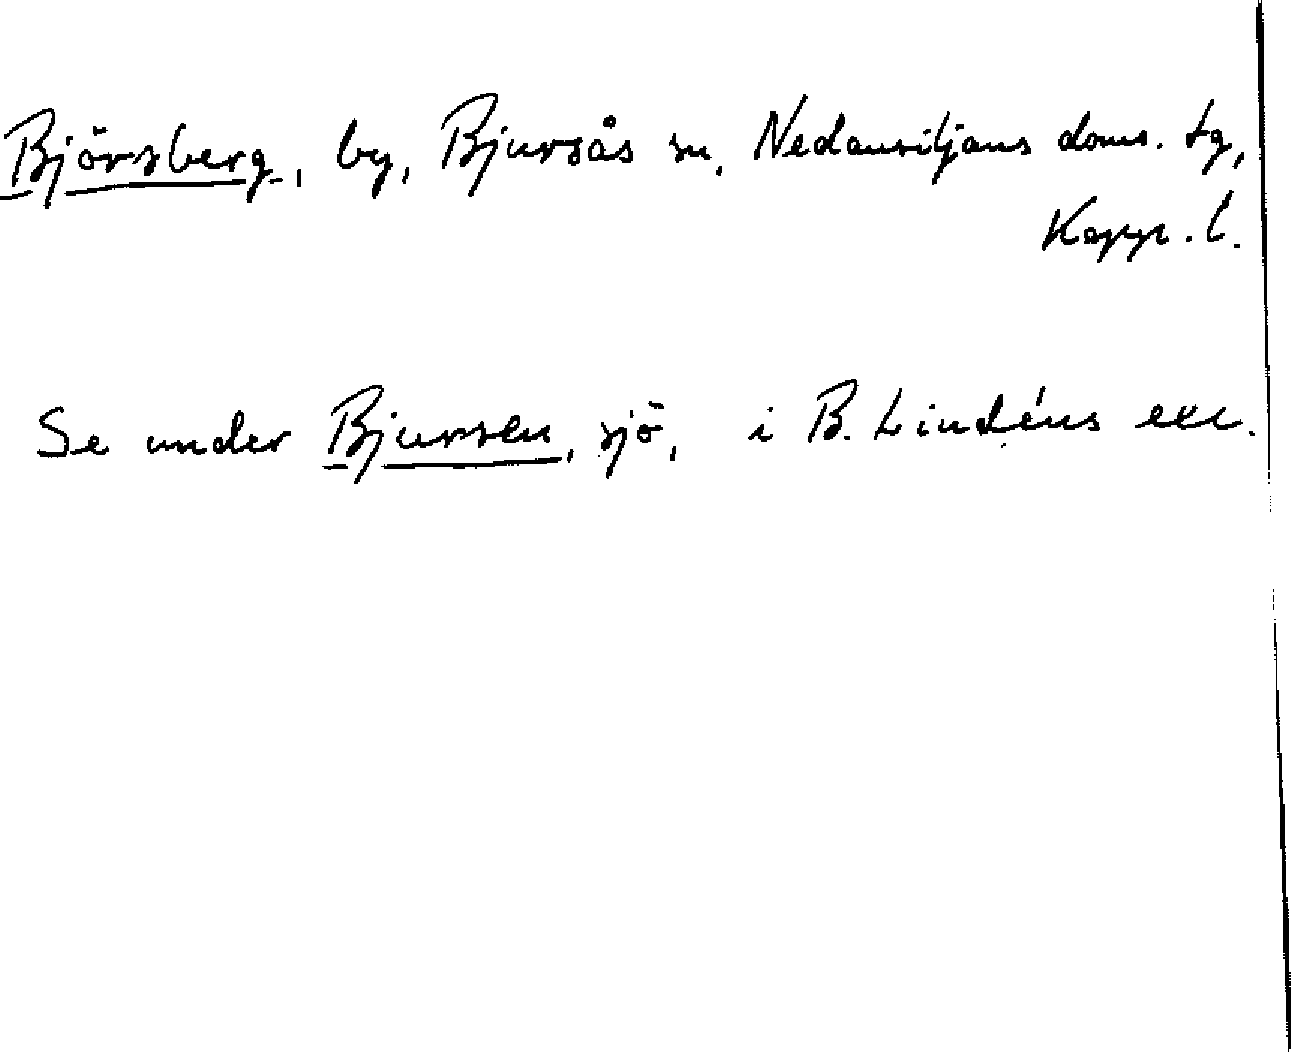 Björsberg, by, Bjursås sn, Nedansiljans doms. tg,
Kopp. l.
Se under Bjursen, sjö, i B. Lindéns exc.